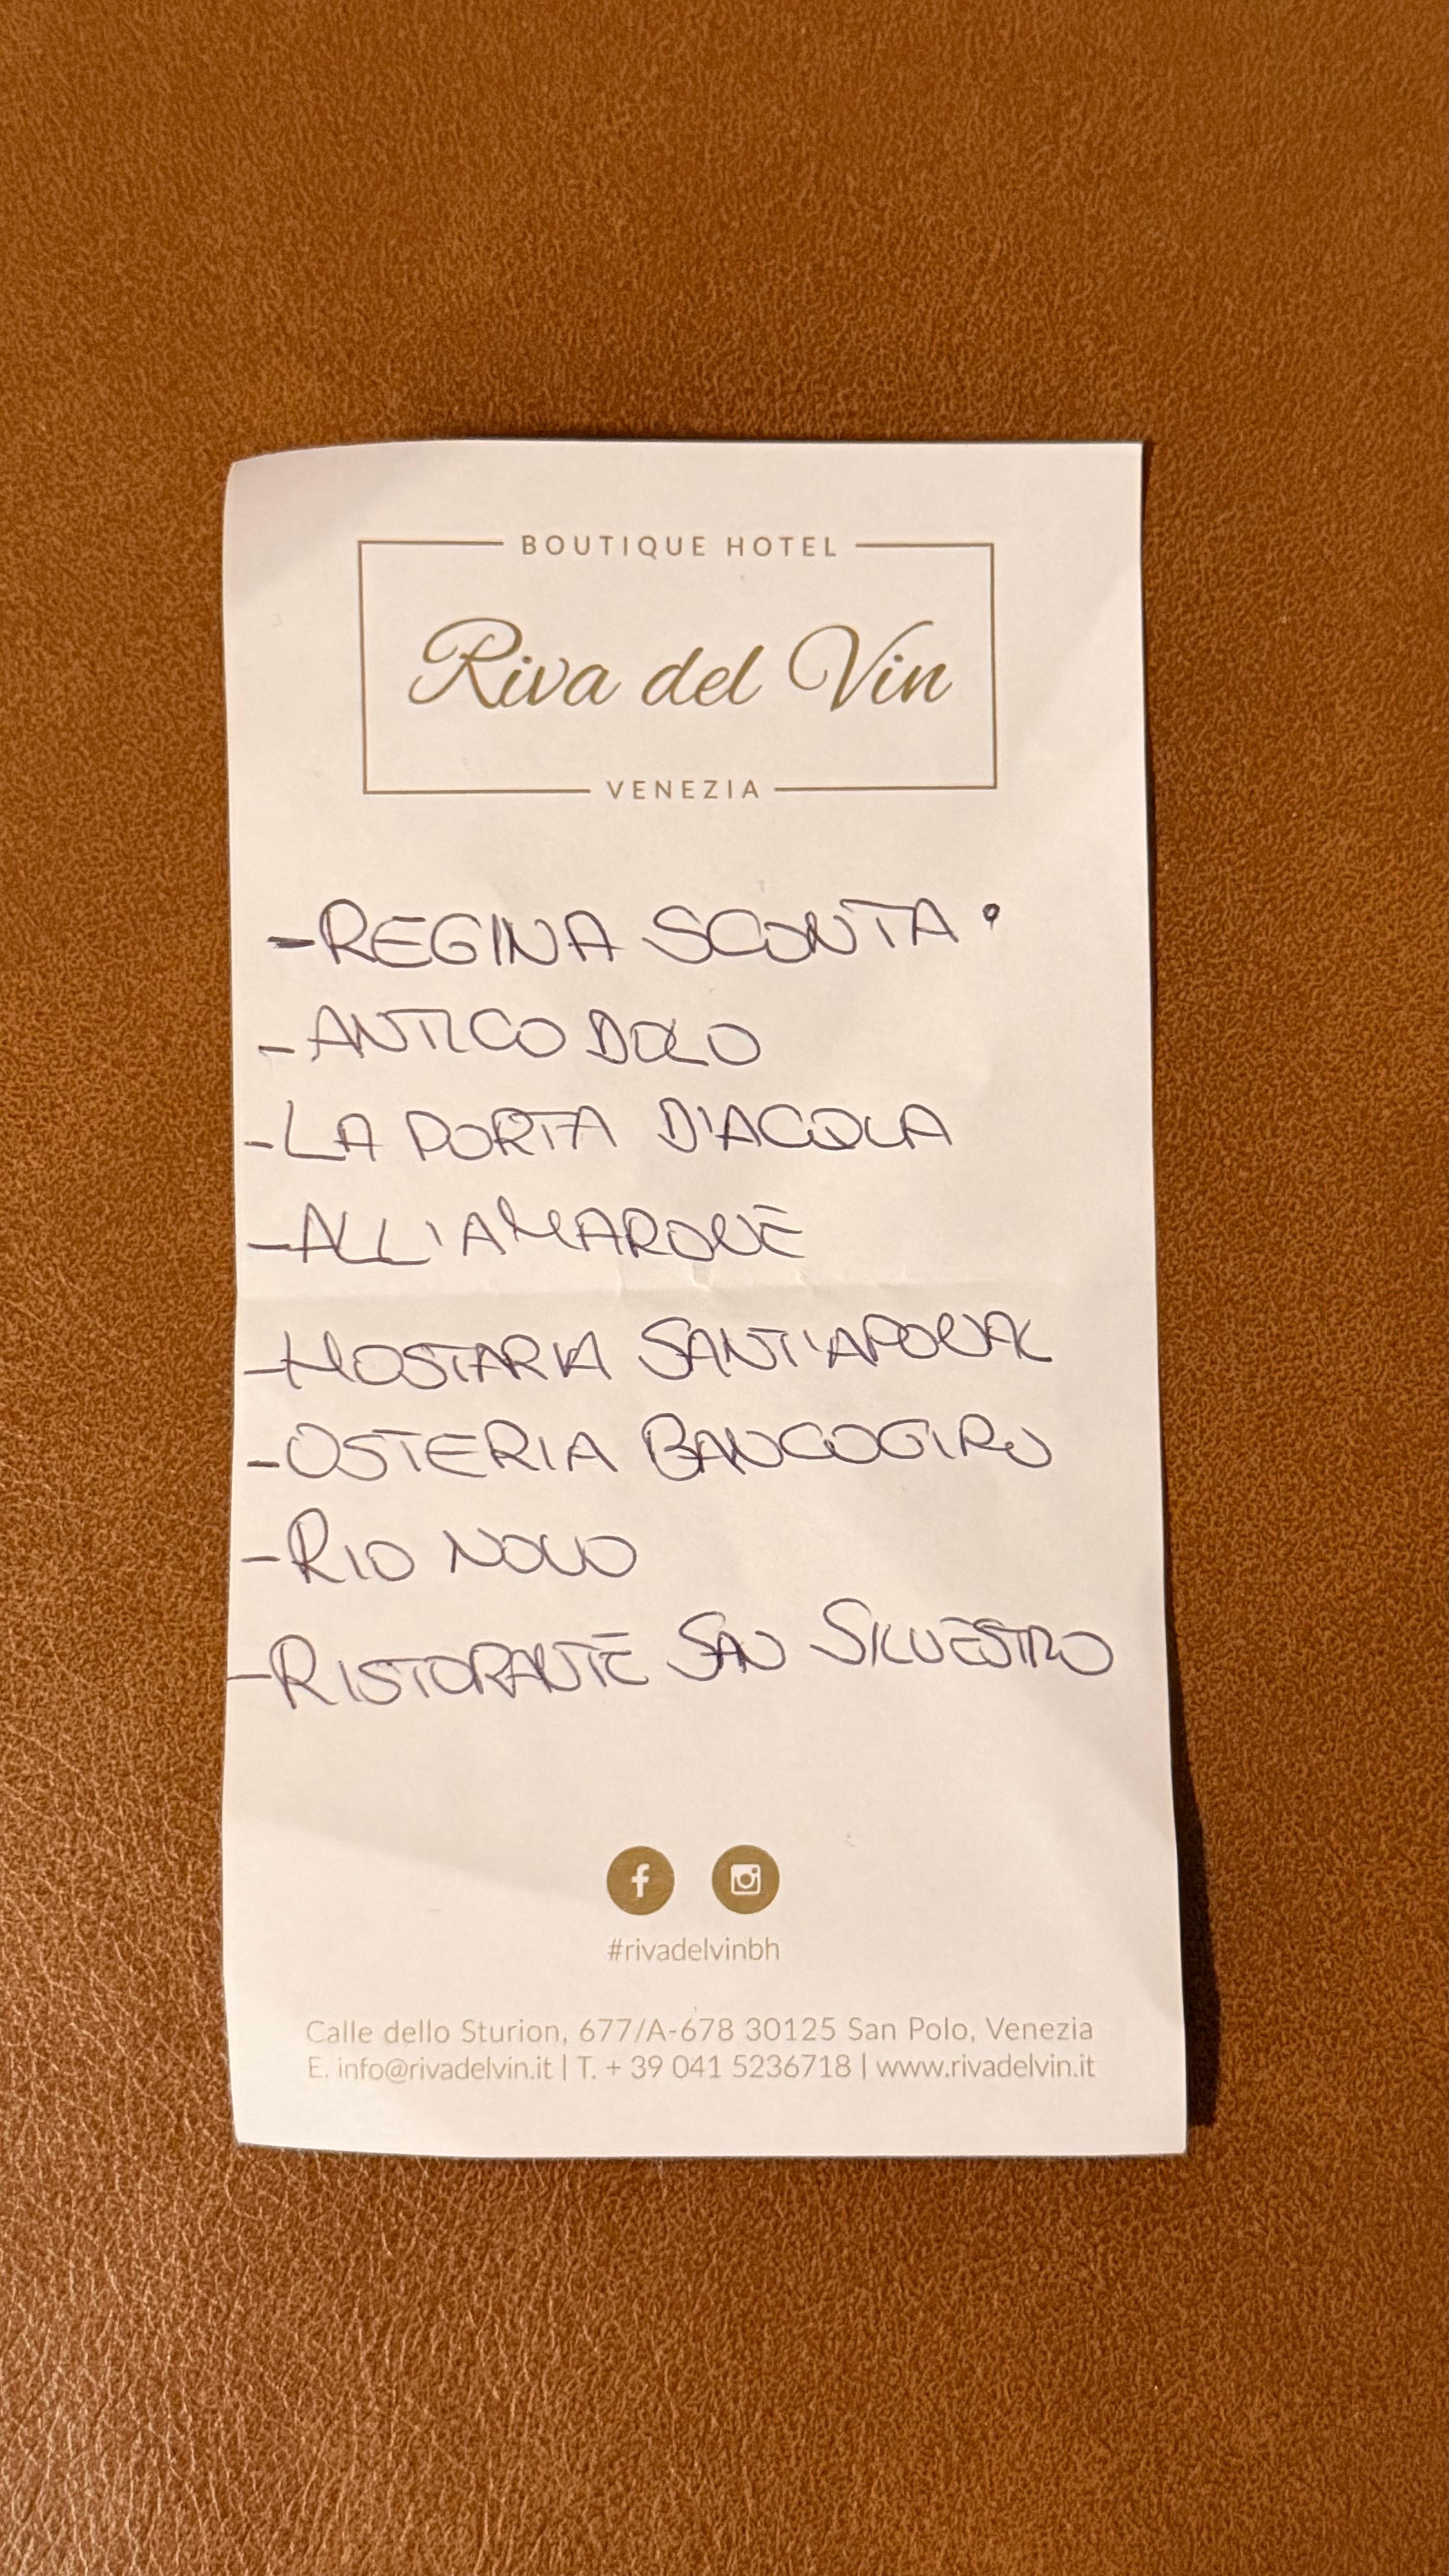 BOUTIQUE HOTEL
Riva del Vin
VENEZIA
-REGINA SCONTA
-ANTICO DOLO
-LA PORTA D'ACQUA
-ALL'AMARONE
-HOSTARIA SANT'APONAL
-OSTERIA BANCOGIRO
-RIO NOVO
-RISTORANTE SAN SILVESTRO
#rivadelvinbh
Calle dello Sturion, 677/A-678 30125 San Polo, Venezia
E. info@rivadelvin.it | T. + 39 041 5236718 | www.rivadelvin.it